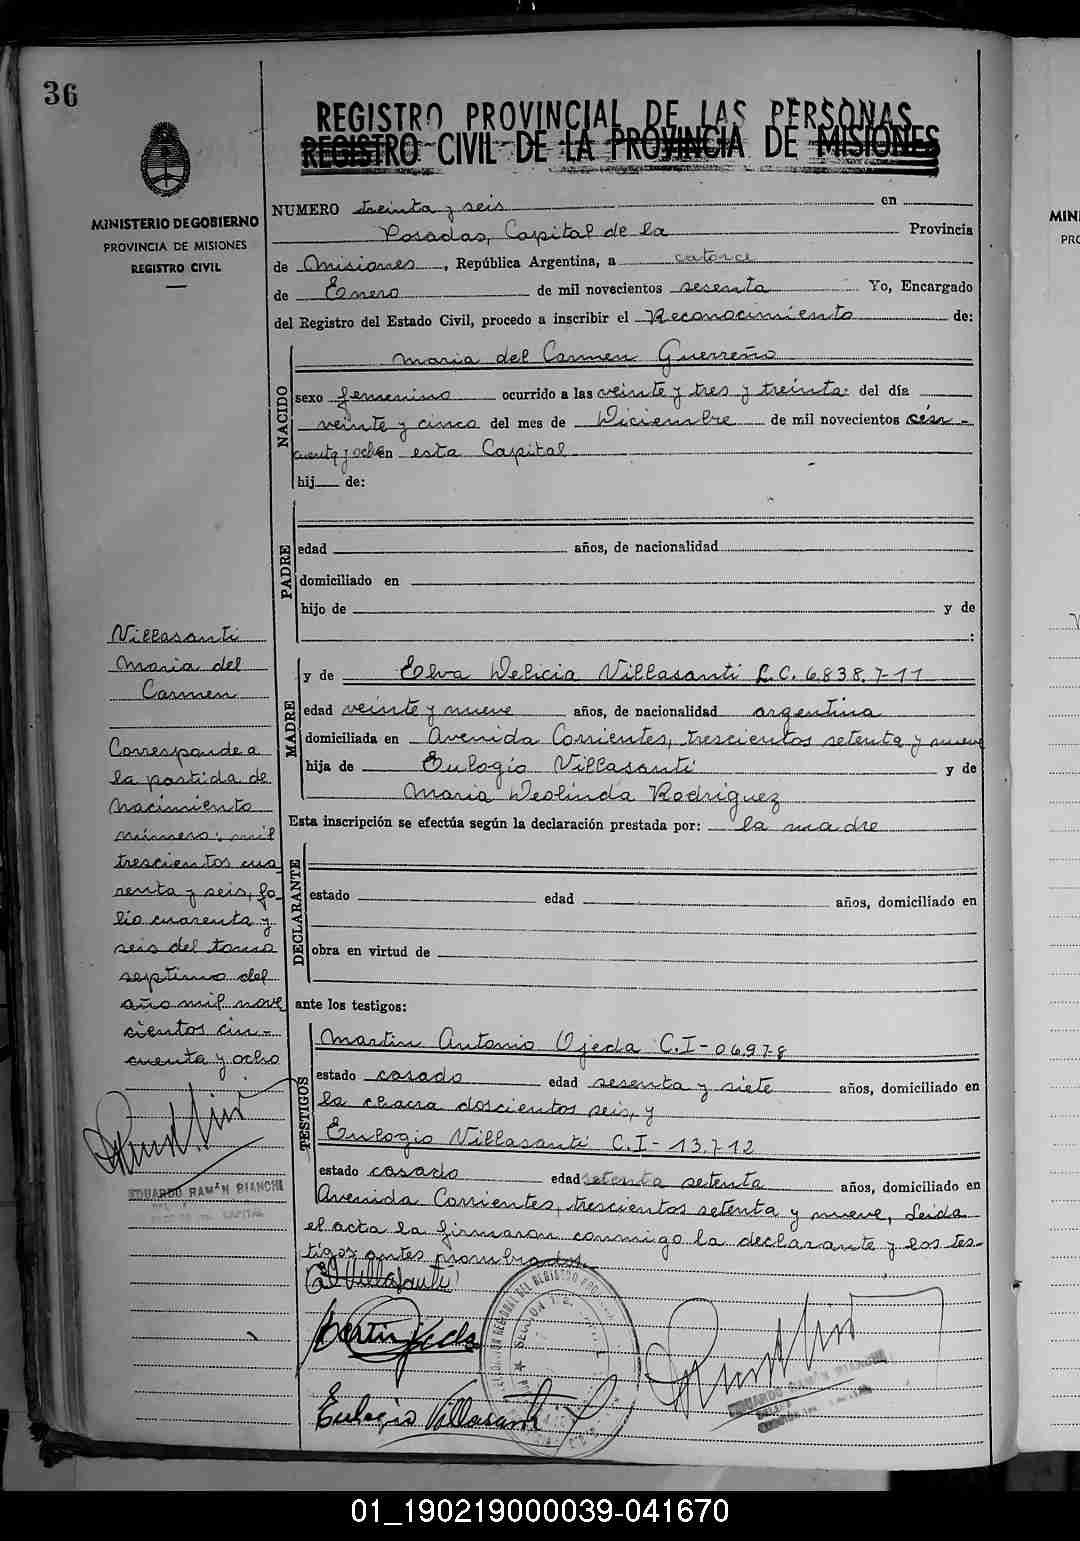 36
REGISTRO PROVINCIAL DE LAS PERSONAS
REGISTRO CIVIL DE LA PROVINCIA DE MISIONES
MINISTERIO DE GOBIERNO
PROVINCIA DE MISIONES
REGISTRO CIVIL
NUMERO treinta y seis en
Posadas, Capital de la Provincia
de Misiones, República Argentina, a catorce
de Enero de mil novecientos sesenta Yo, Encargado
del Registro del Estado Civil, procedo a inscribir el Reconocimiento de:
NACIDO
Maria del Carmen Guerreño
sexo femenino ocurrido a las veinte y tres y treinta del día
veinte y cinco del mes de Diciembre de mil novecientos cin-
cuenta y ocho en esta Capital
hij de:
PADRE
edad años, de nacionalidad
domiciliado en
hijo de y de
:
MADRE
y de Elva Delicia Villasanti L.C. 6.838.7-11
edad veinte y nueve años, de nacionalidad argentina
domiciliada en Avenida Corrientes, trescientos setenta y nueve
hija de Eulogio Villasanti y de
Maria Deolinda Rodriguez
Esta inscripción se efectúa según la declaración prestada por: la madre
DECLARANTE
estado edad años, domiciliado en
obra en virtud de
ante los testigos:
TESTIGOS
Martin Antonio Ojeda C.I-06.97-8
estado casado edad sesenta y siete años, domiciliado en
la chacra doscientos seis, y
Eulogio Villasanti C.I-13.7.12
estado casado edad setenta setenta años, domiciliado en
Avenida Corrientes, trescientos setenta y nueve, Leida
el acta la firmaron conmigo la declarante y los tes-
tigos antes nombrados.
Villasanti
Maria del
Carmen
Corresponde a
la partida de
nacimiento
número, mil
trescientos cua
renta y seis, fo
lio cuarenta y
seis del tomo
septimo del
año mil nove
cientos cin-
cuenta y ocho
EDUARDO RAMÓN BIANCHI
CAPITAL
E D Villasanti
Martin Ojeda
Eulogio Villasanti
EDUARDO RAMÓN BIANCHI
MIN
PRO
01_190219000039-041670